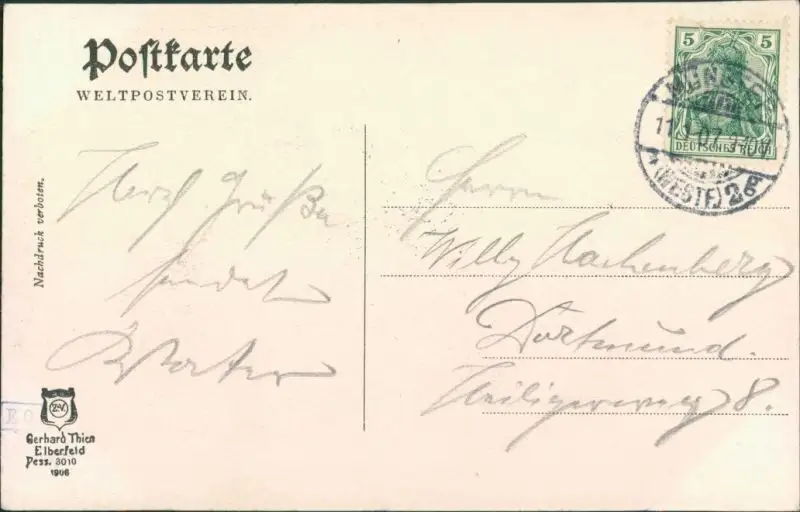 Postkarte
WELTPOSTVEREIN.
5 5
DEUTSCHES REICH
MÜNSTER
11.1.07
(WESTF.) 2
Nachdruck verboten.
Herzl Grüße
sendet
Vater
Herrn
Willy Hachenberg
Dortmund.
Heiligerweg 8.
Z.V.
Gerhard Thien
Elberfeld
Pess. 3010
1906